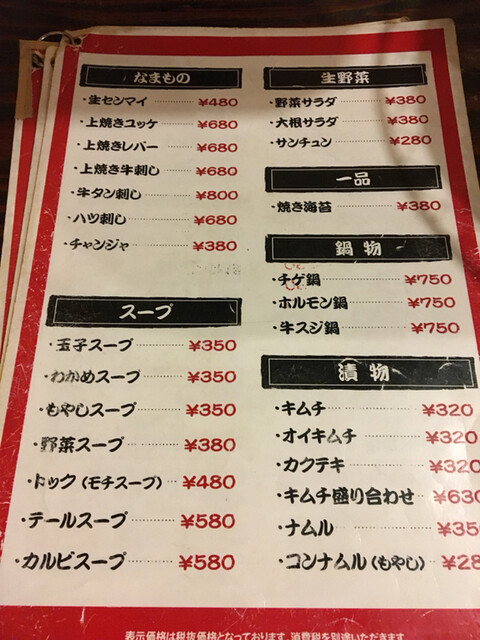 なまもの
・生センマイ ¥480
・上焼きユッケ ¥680
・上焼きレバー ¥680
・上焼き牛刺し ¥680
・牛タン刺し ¥800
・ハツ刺し ¥680
・チャンジャ ¥380
スープ
・玉子スープ ¥350
・わかめスープ ¥350
・もやしスープ ¥350
・野菜スープ ¥380
・トック(モチスープ) ¥480
・テールスープ ¥580
・カルビスープ ¥580
生野菜
・野菜サラダ ¥380
・大根サラダ ¥380
・サンチュン ¥280
一品
・焼き海苔 ¥380
鍋物
・チゲ鍋 ¥750
・ホルモン鍋 ¥750
・牛スジ鍋 ¥750
漬物
・キムチ ¥320
・オイキムチ ¥320
・カクテキ ¥320
・キムチ盛り合わせ ¥630
・ナムル ¥35
・コンナムル(もやし) ¥28
表示価格は税抜価格となっております。消費税を別途いただきます。